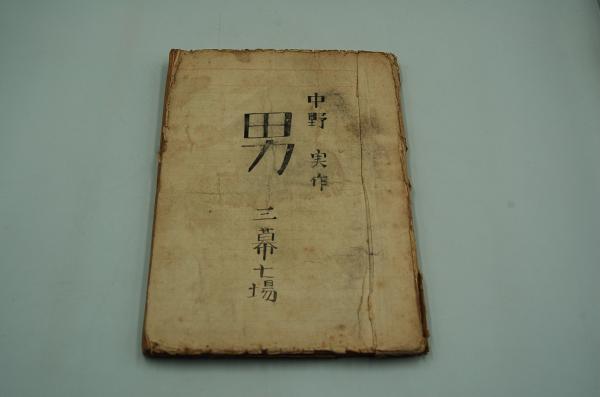 中野 実作
男
三幕七場